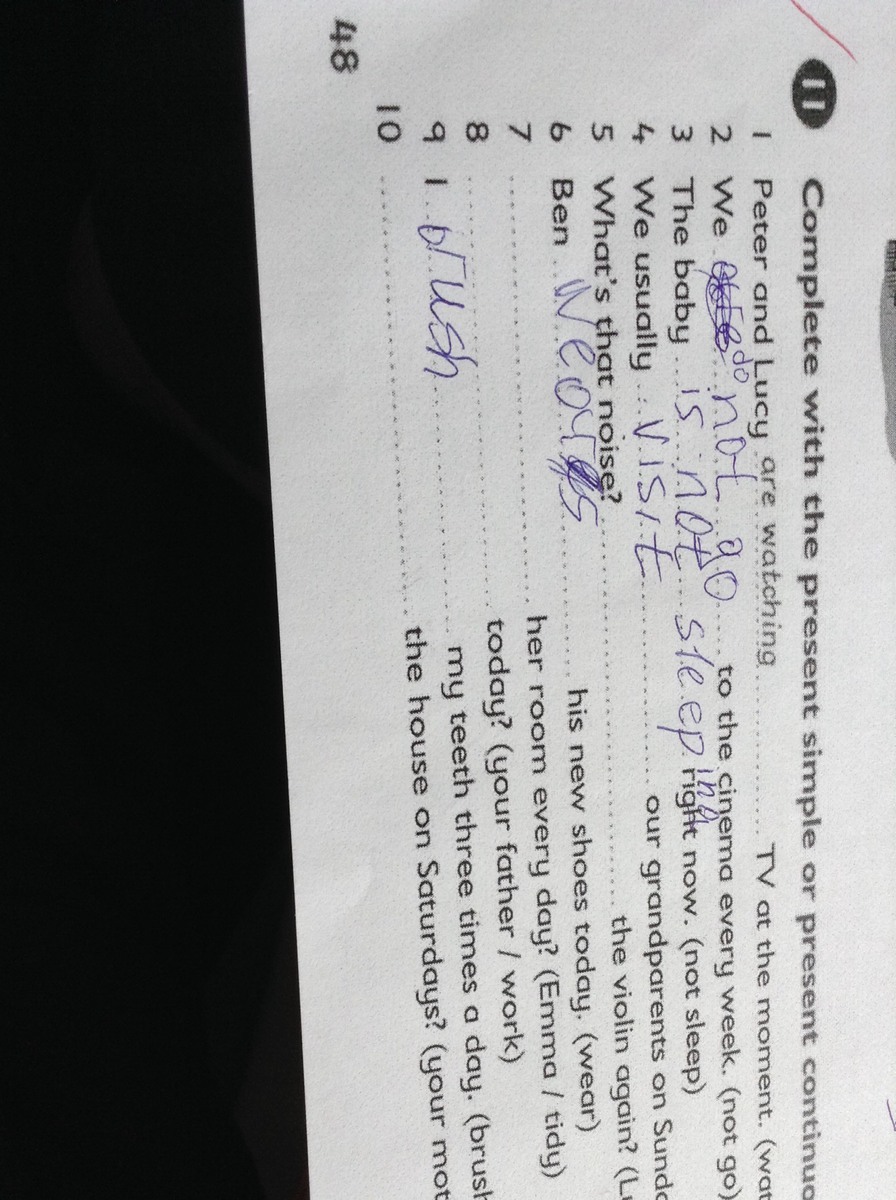 11 Complete with the present simple or present continuo
1 Peter and Lucy are watching TV at the moment. (wat
2 We do not go to the cinema every week. (not go)
3 The baby is not sleeping right now. (not sleep)
4 We usually visit our grandparents on Sunda
5 What's that noise? the violin again? (L
6 Ben wears his new shoes today. (wear)
7 her room every day? (Emma / tidy)
8 today? (your father / work)
9 I brush my teeth three times a day. (brush
10 the house on Saturdays? (your mot
48